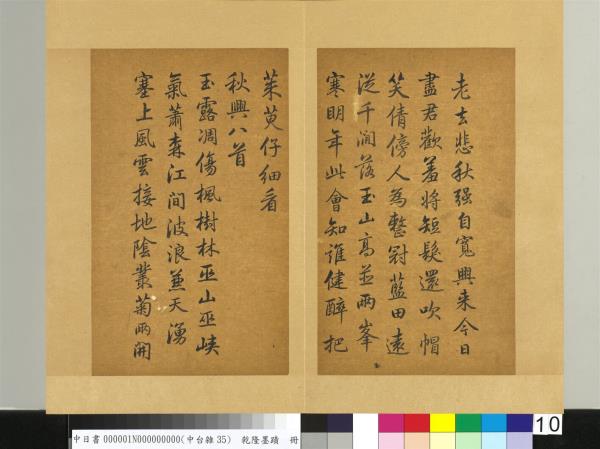 老去悲秋强自寬興来今日
盡君歡羞將短髮還吹帽
笑倩傍人為整冠藍田遠
從千澗落玉山高並兩峯
寒明年此會知誰健醉把
茱萸仔細看
秋興八首
玉露凋傷楓樹林巫山巫峽
氣蕭森江間波浪兼天湧
塞上風雲接地陰叢菊兩開
中日書 000001N000000000(中台雜 35) 乾隆墨蹟 冊
10